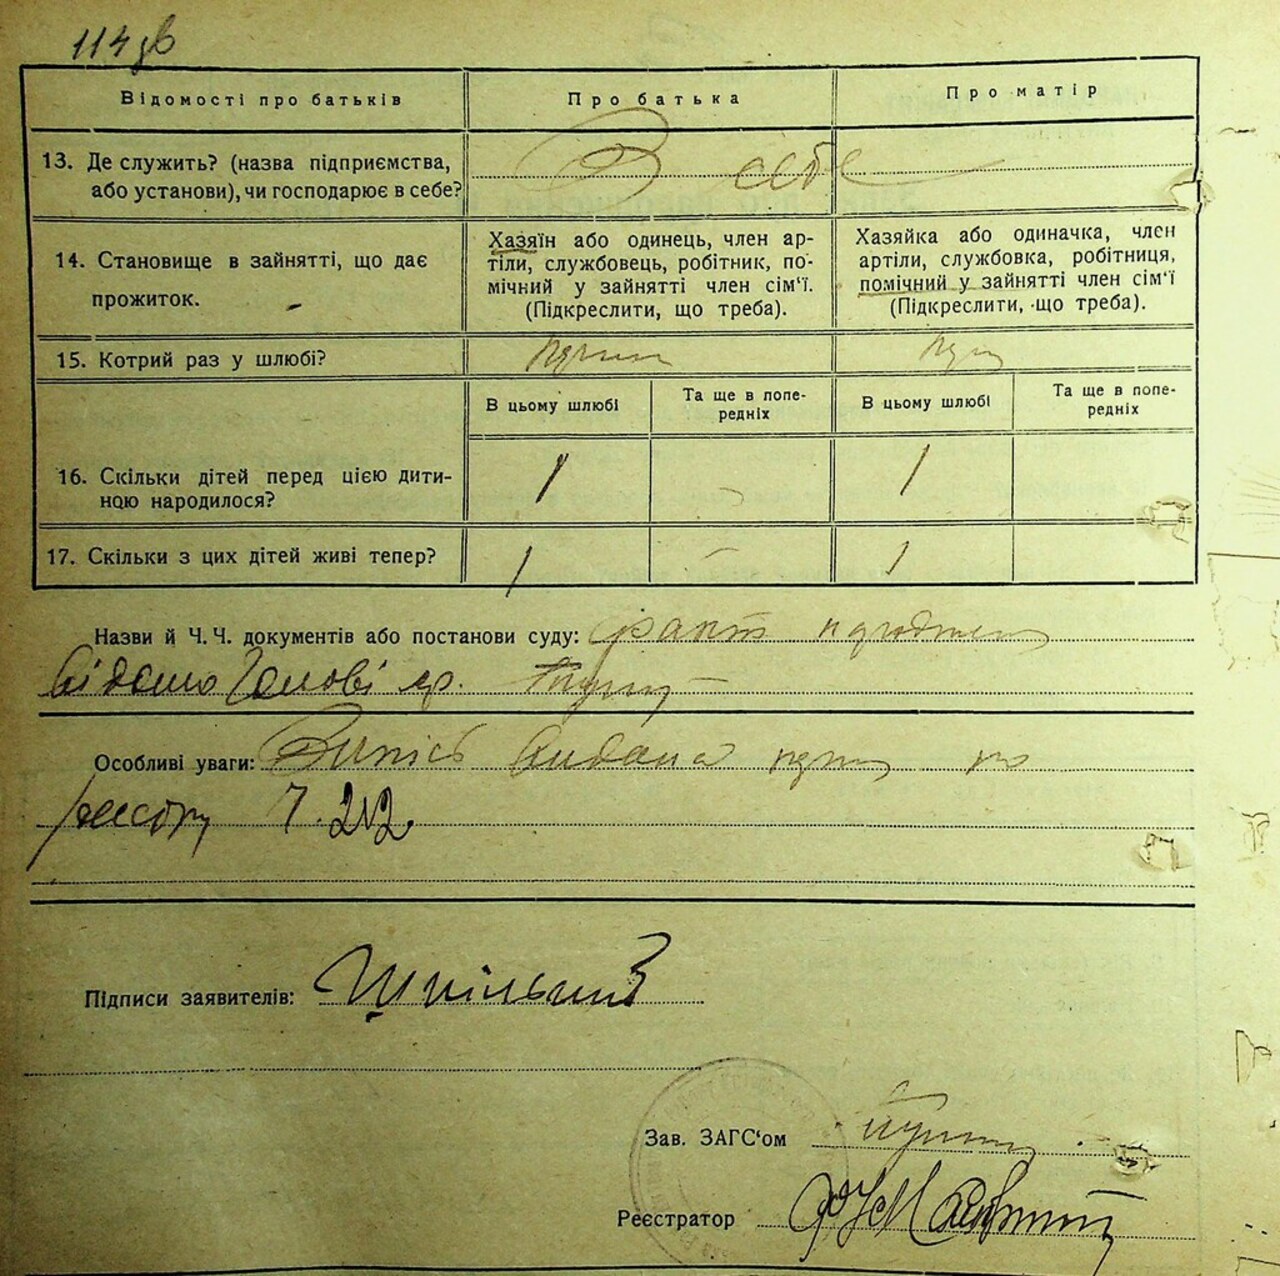 114 зв
Відомості про батьків
Про батька
Про матір
13. Де служить? (назва підприємства,
або установи), чи господарює в себе?
В себе
14. Становище в зайнятті, що дає
прожиток.
Хазяїн або одинець, член ар-
тіли, службовець, робітник, по-
мічний у зайнятті член сім'ї.
(Підкреслити, що треба).
Хазяйка або одиначка, член
артіли, службовка, робітниця,
помічний у зайнятті член сім'ї
(Підкреслити, що треба).
15. Котрий раз у шлюбі?
В цьому шлюбі
Та ще в попе-
редніх
В цьому шлюбі
Та ще в попе-
редніх
16. Скільки дітей перед цією дити-
ною народилося?
1
-
1
17. Скільки з цих дітей живі тепер?
1
-
1
Назви й Ч.Ч. документів або постанови суду: факт
Особливі уваги: Випись видана
Ч. 212
Підписи заявителів:
Зав. ЗАГС'ом
Реєстратор